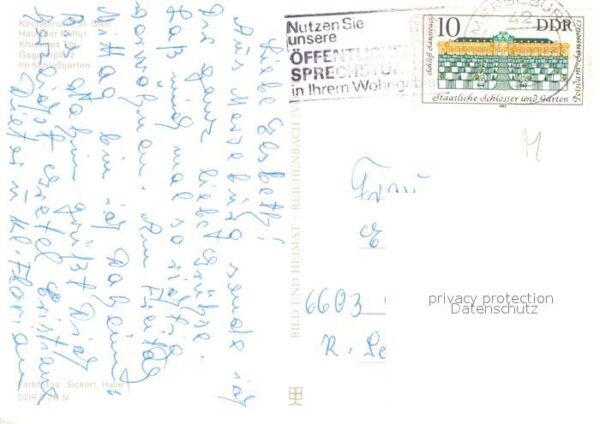 Kirchenruine
Haus der Kultur
Krummes Tor
Gagarinplatz
Im Schloßgarten
Liebe Elsbeth!
Aus Merseburg sende ich
Dir ganz liebe Grüße.
Laß mich mal so richtig
verwöhnen. Am Freitag
Mittag bin ich daheim.
grüßt Dich
herzlichst
u. Kl. Florian
Farbfotos: Sickert, Halle
DDR 0,20 M
BILD UND HEIMAT · REICHENBACH (V
Nutzen Sie
unsere
ÖFFENTLICHE
SPRECHSTU
in Ihrem Wohngebie
MERSEBURG
42
10
DDR
Schloß Sanssouci
Potsdam-Sanssouci
Staatliche Schlösser und Gärten
Frau
E
6603
R.
privacy protection
Datenschutz